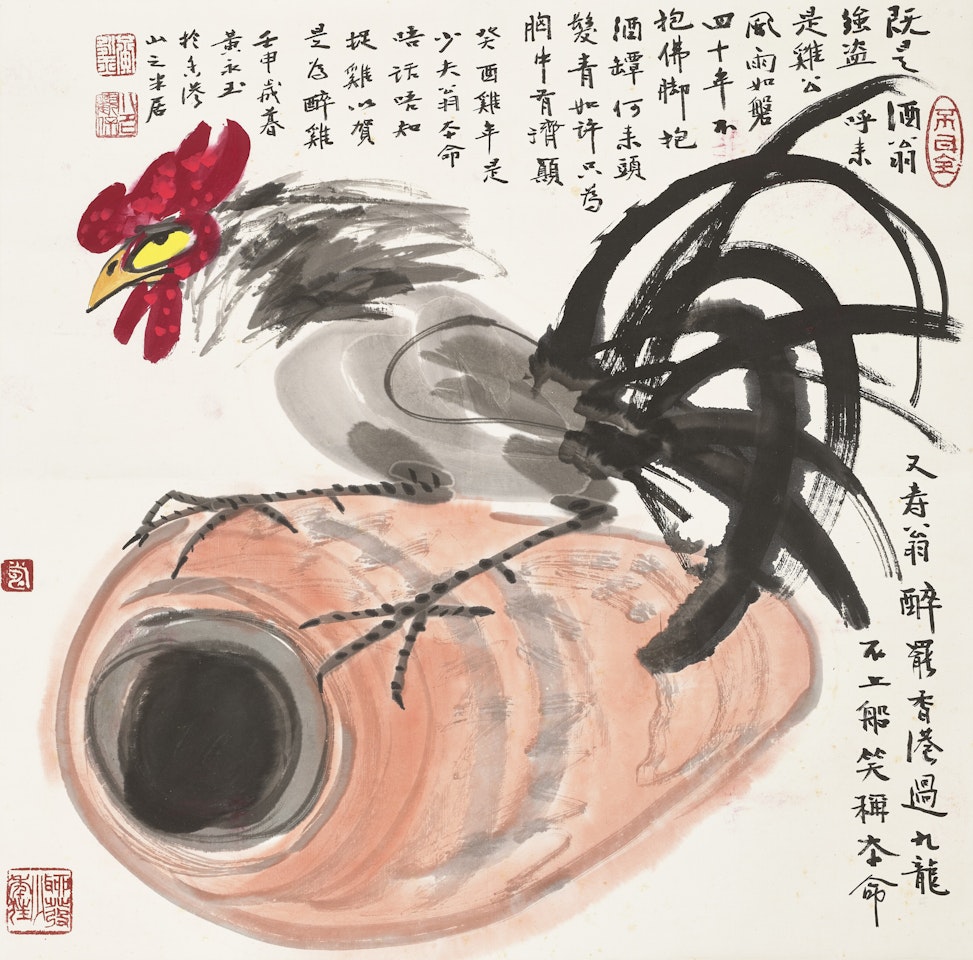 既是酒翁
強盗呼来
是雞公
風雨如磐
四十年不
抱佛脚抱
酒罈何来頭
髮青如許只為
胸中有濟顛
癸酉雞年是
少夫翁本命
唔話唔知
捉雞以賀
是為醉雞
壬申歲暮
黃永玉
於香港
山之半居
又寿翁醉罷香港過九龍
不上船笑稱本命